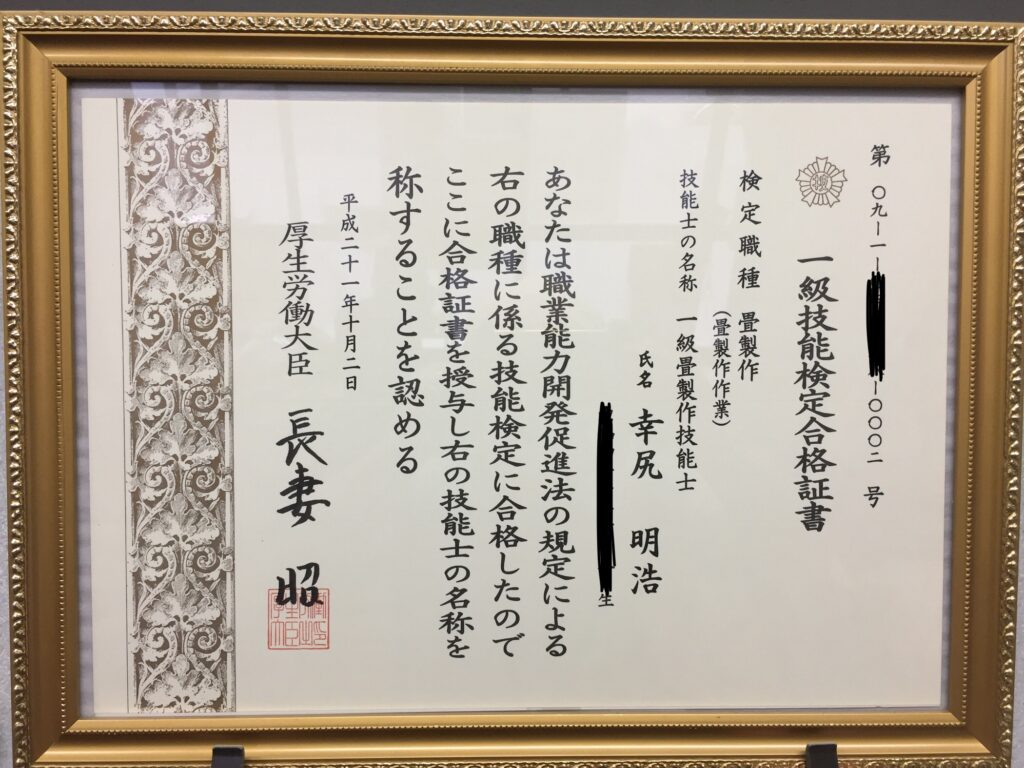 第〇九ー一ー ー〇〇〇二号
一級技能検定合格証書
検定職種 畳製作
(畳製作作業)
技能士の名称 一級畳製作技能士
氏名 幸尻 明浩
生
あなたは職業能力開発促進法の規定による
右の職種に係る技能検定に合格したので
ここに合格証書を授与し右の技能士の名称を
称することを認める
平成二十一年十月二日
厚生労働大臣 長妻 昭